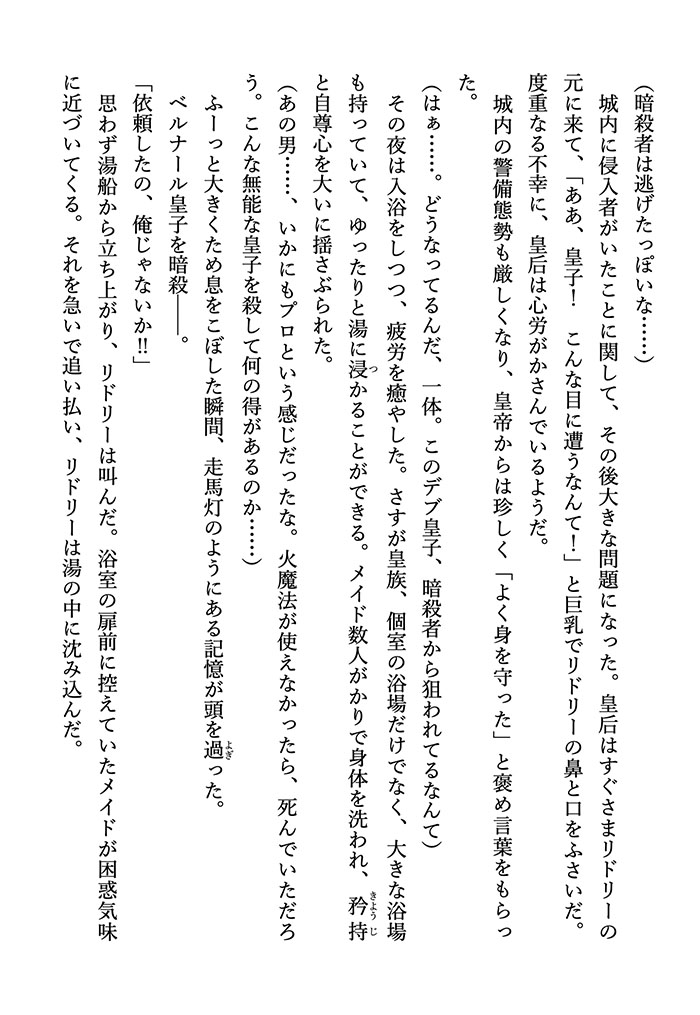 (暗殺者は逃げたっぽいな……)
　城内に侵入者がいたことに関して、その後大きな問題になった。皇后はすぐさまリドリーの
元に来て、「ああ、皇子！　こんな目に遭うなんて！」と巨乳でリドリーの鼻と口をふさいだ。
度重なる不幸に、皇后は心労がかさんでいるようだ。
　城内の警備態勢も厳しくなり、皇帝からは珍しく「よく身を守った」と褒め言葉をもらっ
た。
(はぁ……。どうなってるんだ、一体。このデブ皇子、暗殺者から狙われてるなんて)
　その夜は入浴をしつつ、疲労を癒やした。さすが皇族、個室の浴場だけでなく、大きな浴場
も持っていて、ゆったりと湯に浸つかることができる。メイド数人がかりで身体を洗われ、矜持きょうじ
と自尊心を大いに揺さぶられた。
(あの男……、いかにもプロという感じだったな。火魔法が使えなかったら、死んでいただろ
う。こんな無能な皇子を殺して何の得があるのか……)
　ふーっと大きくため息をこぼした瞬間、走馬灯のようにある記憶が頭を過よぎった。
　ベルナール皇子を暗殺――。
「依頼したの、俺じゃないか!!」
　思わず湯船から立ち上がり、リドリーは叫んだ。浴室の扉前に控えていたメイドが困惑気味
に近づいてくる。それを急いで追い払い、リドリーは湯の中に沈み込んだ。